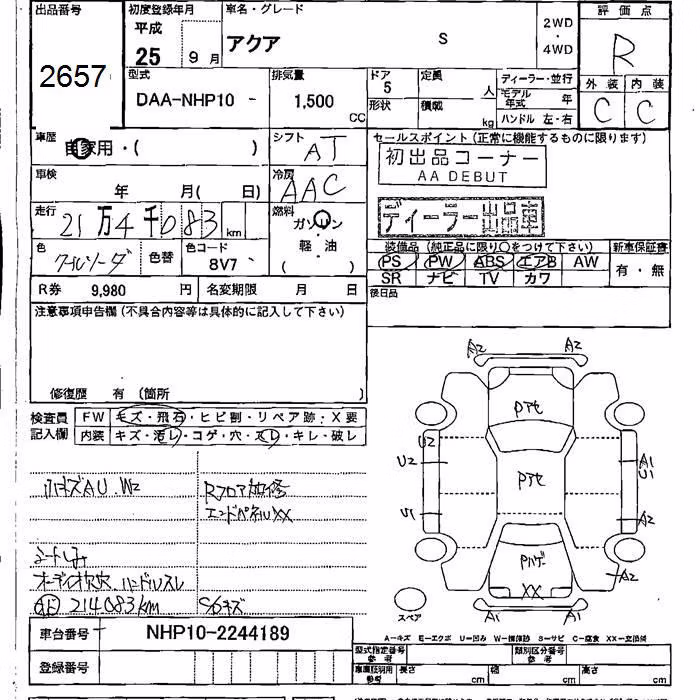 出品番号 初度登録年月 車名・グレード 評価点
平成 25 年 9月 アクア S 2WD・4WD R
2657
型式 排気量 ドア 定員 ディーラー・並行 外装 内装
DAA-NHP10 - 1,500 CC 5 人 モデル年式 年 C C
形状 積載 kg ハンドル 左・右
車歴 シフト セールスポイント(正常に機能するものに限ります)
自家用・( ) AT 初出品コーナー
AA DEBUT
車検 冷房
年 月( 日) AAC
走行 燃料 ディーラー出品車
21万4千083 km ガソリン・軽油
( )
色 色替 色コード 装備品(純正品に限り○をつけて下さい) 新車保証書
クールソーダ 8V7 PS PW ABS エアB AW 有・無
SR ナビ TV カワ
R券 9,980 円 名変期限 月 日 後日品
注意事項申告欄(不具合内容等は具体的に記入して下さい)
修復歴 有(箇所 )
検査員 FW キズ・飛石・ヒビ割・リペア跡・X要
記入欄 内装 キズ・汚レ・コゲ・穴・スレ・キレ・破レ
小キズAU.W2 Rフロア加修
エンドパネルXX
シートしみ
オーディオ欠穴 ハンドルスレ
214083km S/Gキズ
A2 A2
Pアセ
U2
U2 Pアセ A1
U1
U1 A2
Pハゲ A2
XX
スペア A1 A1
A-キズ E-エクボ U-凹み W-補修跡 S-サビ C-腐食 XX-交換済
車台番号 NHP10-2244189 型式指定番号 参考 類別区分番号 参考
登録番号 車庫証明用 参考 長さ cm 幅 cm 高さ cm